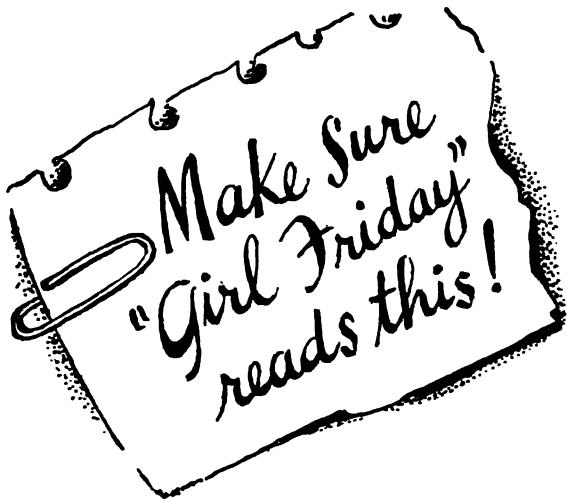 Make Sure
"Girl Friday"
reads this!